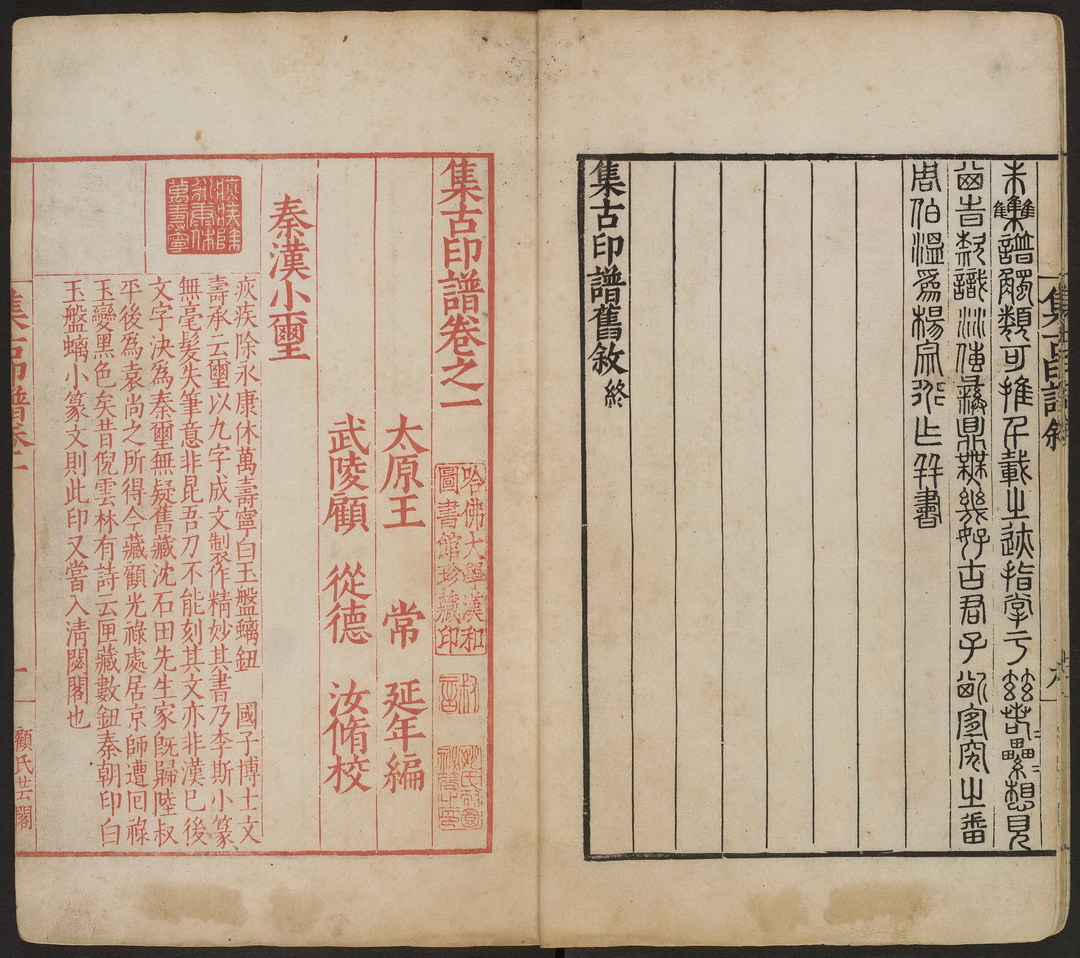 集古印譜敘
譜觸類可推千載之迹指掌亏茲想見
款識傳彝鼎幾好古君子究之番
周伯溫爲楊并書
集古印譜舊敘終
集古印譜卷之一
哈佛大學漢和
圖書館珍藏印
太原王常延年編
武陵顧從德汝脩校
秦漢小璽
疢疾除永康休萬壽寧白玉盤螭鈕 國子博士文
壽承云璽以九字成文製作精妙其書乃李斯小篆
無毫髮失筆意非昆吾刀不能刻其文亦非漢已後
文字決為秦璽無疑舊藏沈石田先生家旣歸陸叔
平後為袁尚之所得今藏顧光祿處居京師遭回祿
玉變黑色矣昔倪雲林有詩云匣藏數鈕秦朝印白
玉盤螭小篆文則此印又當入清閟閣也
疢疾除
永康休
萬壽寧
集古印譜卷一
一
顧氏芸閣